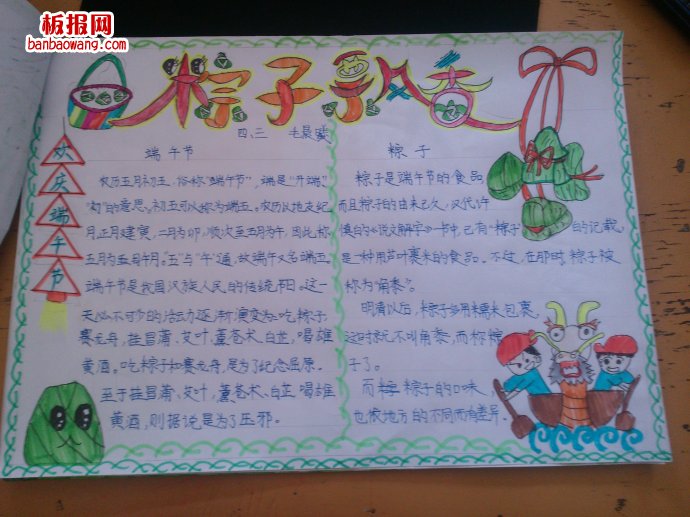 板报网
banbaowang.com
粽子飘香
四、三 毛晨
欢庆端午节
端午节
农历五月初五,俗称"端午节",端是"开端"
"初"的意思。初五可以称为端五。农历以地支纪
月正月建寅,二月为卯,顺次至五月为午,因此称
五月为午月。"五"与"午"通,故端午又名端五。
端午节是我国汉族人民的传统节日。这一
天必不可少的活动逐渐演变为:吃粽子,
赛龙舟,挂菖蒲、艾叶,薰苍术、白芷,喝雄
黄酒。吃粽子和赛龙舟,是为了纪念屈原。
至于挂菖蒲、艾叶,薰苍术、白芷,喝雄
黄酒,则据说是为了压邪。
粽子
粽子是端午节的食品
而且粽子的由来已久,汉代许
慎的《说文解字》一书中,已有"粽子"的记载,
是一种用芦叶裹米的食品。不过,在那时,粽子被
称为"角黍"。
明清以后,粽子多用糯米包裹,
这时就不叫角黍,而称粽
子了。
而粽子的口味,
也依地方的不同而有差异。